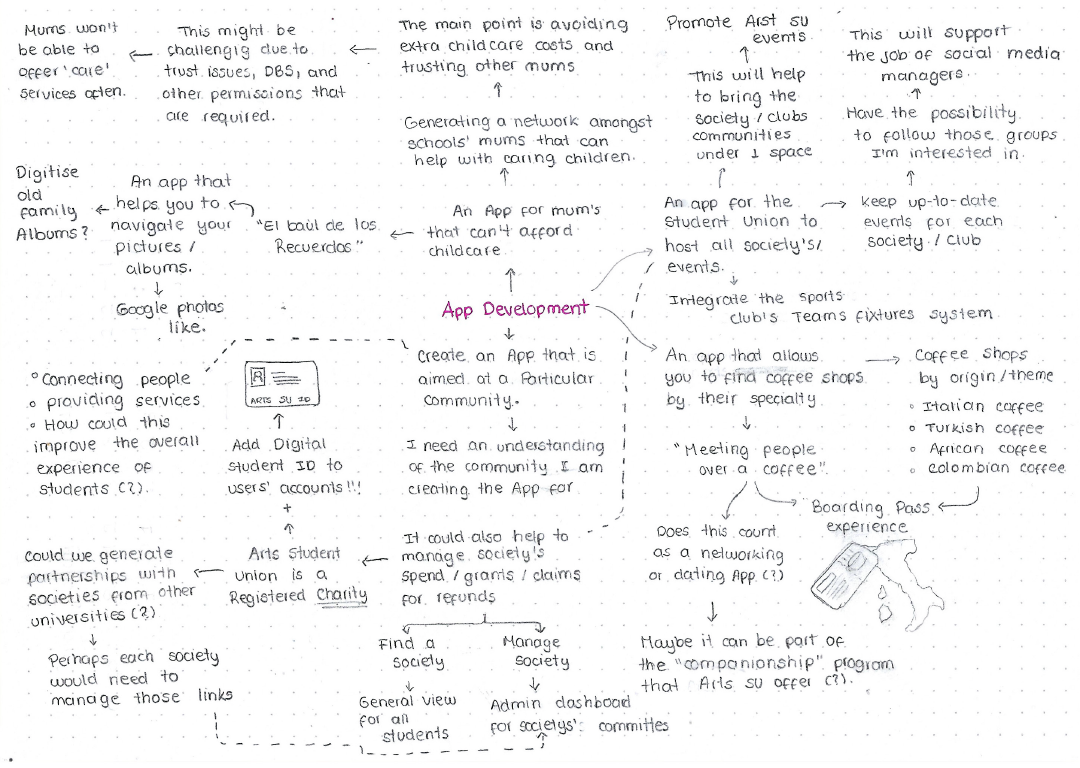 Mums won't
be able to
offer 'care'
services often.
This might be
challengig due to
trust issues, DBS, and
other permissions that
are required.
The main point is avoiding
extra childcare costs and
trusting other mums
Promote Arst su
events
This will support
the job of social media
managers.
Generating a network amongst
schools' mums that can
help with caring children.
This will help
to bring the
society / clubs
communities
under 1 space
Have the possibility
to follow those groups
I'm interested in.
Digitise
old
family
Albums?
An app that
helps you to
navigate your
pictures /
albums.
"El baúl de los
Recuerdos"
An App for mum's
that can't afford
childcare
An app for the
Student Union to
host all society's/
events.
keep up-to-date
events for each
society / club
Google photos
like.
App Development
Integrate the sports
club's Teams fixtures system
Connecting people
providing services
How could this
improve the overall
experience of
students (?).
ARTS SU ID
Add Digital
Student ID to
users' accounts!!!
+
Create an App that is
aimed at a Particular
community.
I need an understanding
of the community I am
creating the App for
An app that allows
you to find coffee shops
by their specialty
Coffee shops
by origin/theme
Italian coffee
Turkish coffee
African coffee
Colombian coffee
"Meeting people
over a coffee".
Boarding Pass
experience
Could we generate
partnerships with
societies from other
universities (?)
Arts Student
Union is a
Registered Charity
It could also help to
manage society's
spend / grants / claims
for refunds
Does this count
as a networking
or dating App (?)
Perhaps each society
would need to
manage those links
Find a
society
Manage
society
General view
for all
students
Admin dashboad
for societys' committes
Maybe it can be part of
the "companionship" program
that Arts su offer (?).